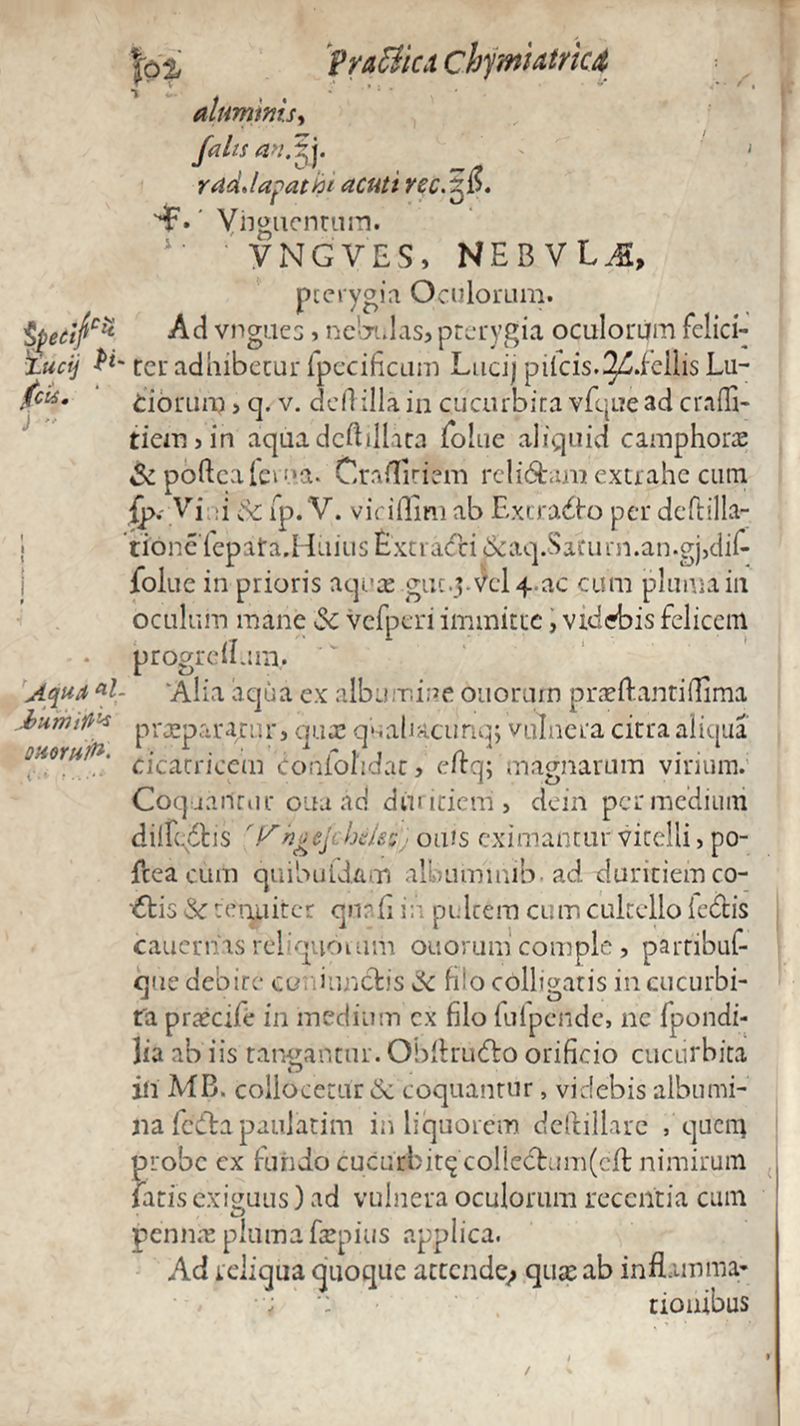 502 Practica Chymiatrica
aluminis,
ſalis an.℥j.
rad.lapathi acuti rec.℥ß.
F. Vnguentum.
VNGVES, NEBVLÆ,
pterygia Oculorum.
Specificū
Lucij Pi-
ſcis.
Ad vngues, nebulas, pterygia oculorum felici-
ter adhibetur ſpecificum Lucij piſcis.℞.fellis Lu-
ciorum, q. v. deſtilla in cucurbita vſque ad craſſi-
tiem, in aqua deſtillata ſolue aliquid camphoræ
& poſtea ſerua. Craſſitiem relictam extrahe cum
ſp. Vini & ſp. V. viciſſim ab Extracto per deſtilla-
tionē ſepara. Huius Extracti &aq.Saturn.an.gj,diſ-
ſolue in prioris aquæ gut.3.vel 4. ac cum pluma in
oculum mane & veſperi immitte, videbis felicem
progreſſum.
Aqua al-
buminis
ouorum.
Alia aqua ex albumine ouorum præſtantiſſima
præparatur, quæ qualiacunq; vulnera citra aliquā
cicatricem conſolidat, eſtq; magnarum virium.
Coquantur oua ad duritiem, dein per medium
diſſectis ouis eximantur vitelli, po-
ſtea cum quibuſdam albuminib. ad duritiem co-
ctis & tenuiter quaſi in pultem cum cultello ſectis
cauernas reliquorum ouorum comple, partibuſ-
que debite coniunctis & filo colligatis in cucurbi-
ta præciſe in medium ex filo ſuſpende, ne ſpondi-
lia ab iis tangantur. Obſtructo orificio cucurbita
in MB. collocetur & coquantur, videbis albumi-
na ſecta paulatim in liquorem deſtillare, quem
probe ex fundo cucurbitę collectum(eſt nimirum
ſatis exiguus) ad vulnera oculorum recentia cum
pennæ pluma ſæpius applica.
Ad reliqua quoque attende, quæ ab inflamma-
tionibus